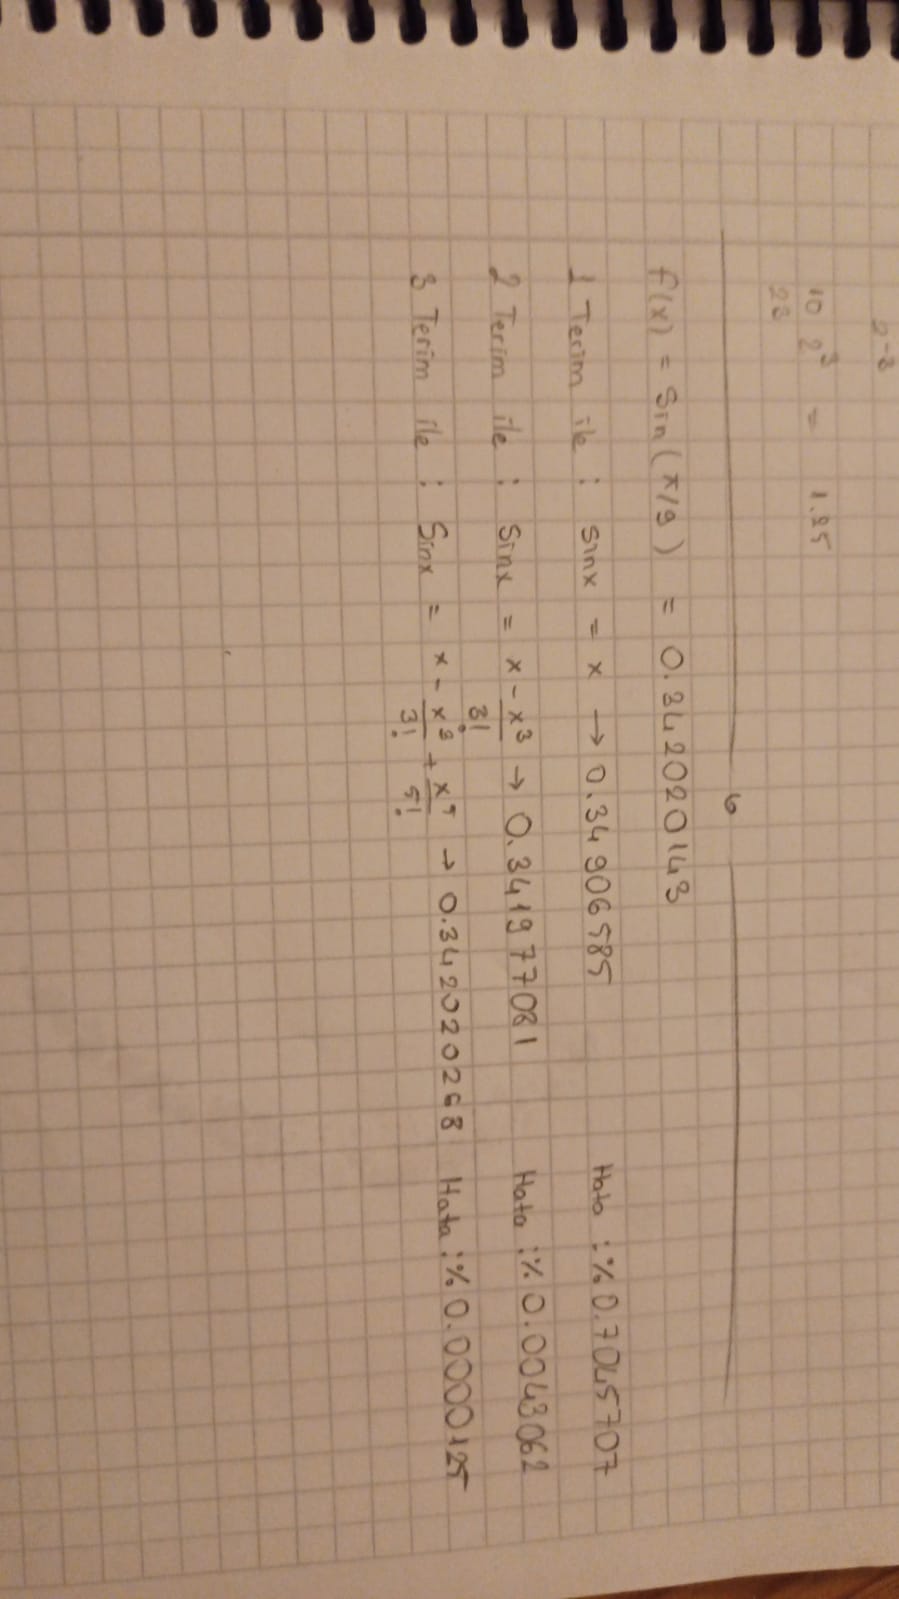 2^-3
10 2^3 = 1.25
23
6
f(x) = Sin(π/9) = 0.342020143
1 Terim ile : sinx = x → 0.34906585 Hata : % 0.7045707
2 Terim ile : Sinx = x - x^3/3! → 0.341977081 Hata : % 0.0043062
3 Terim ile : Sinx = x - x^3/3! + x^5/5! → 0.342020268 Hata : % 0.0000125